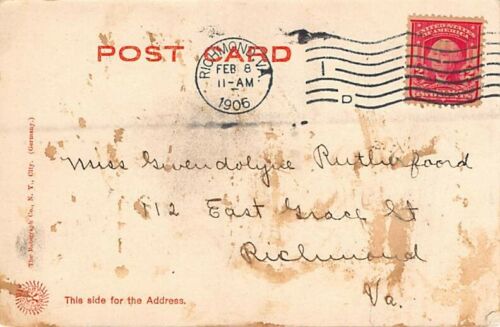 POST CARD
RICHMOND, VA.
FEB 8
11-AM
1906
1
D
UNITED STATES
OF AMERICA
Miss Gwendolyne Rutherfoord
112 East Grace St
Richmond
Va.
The Rotograph Co., N. Y. City. (Germany.)
This side for the Address.